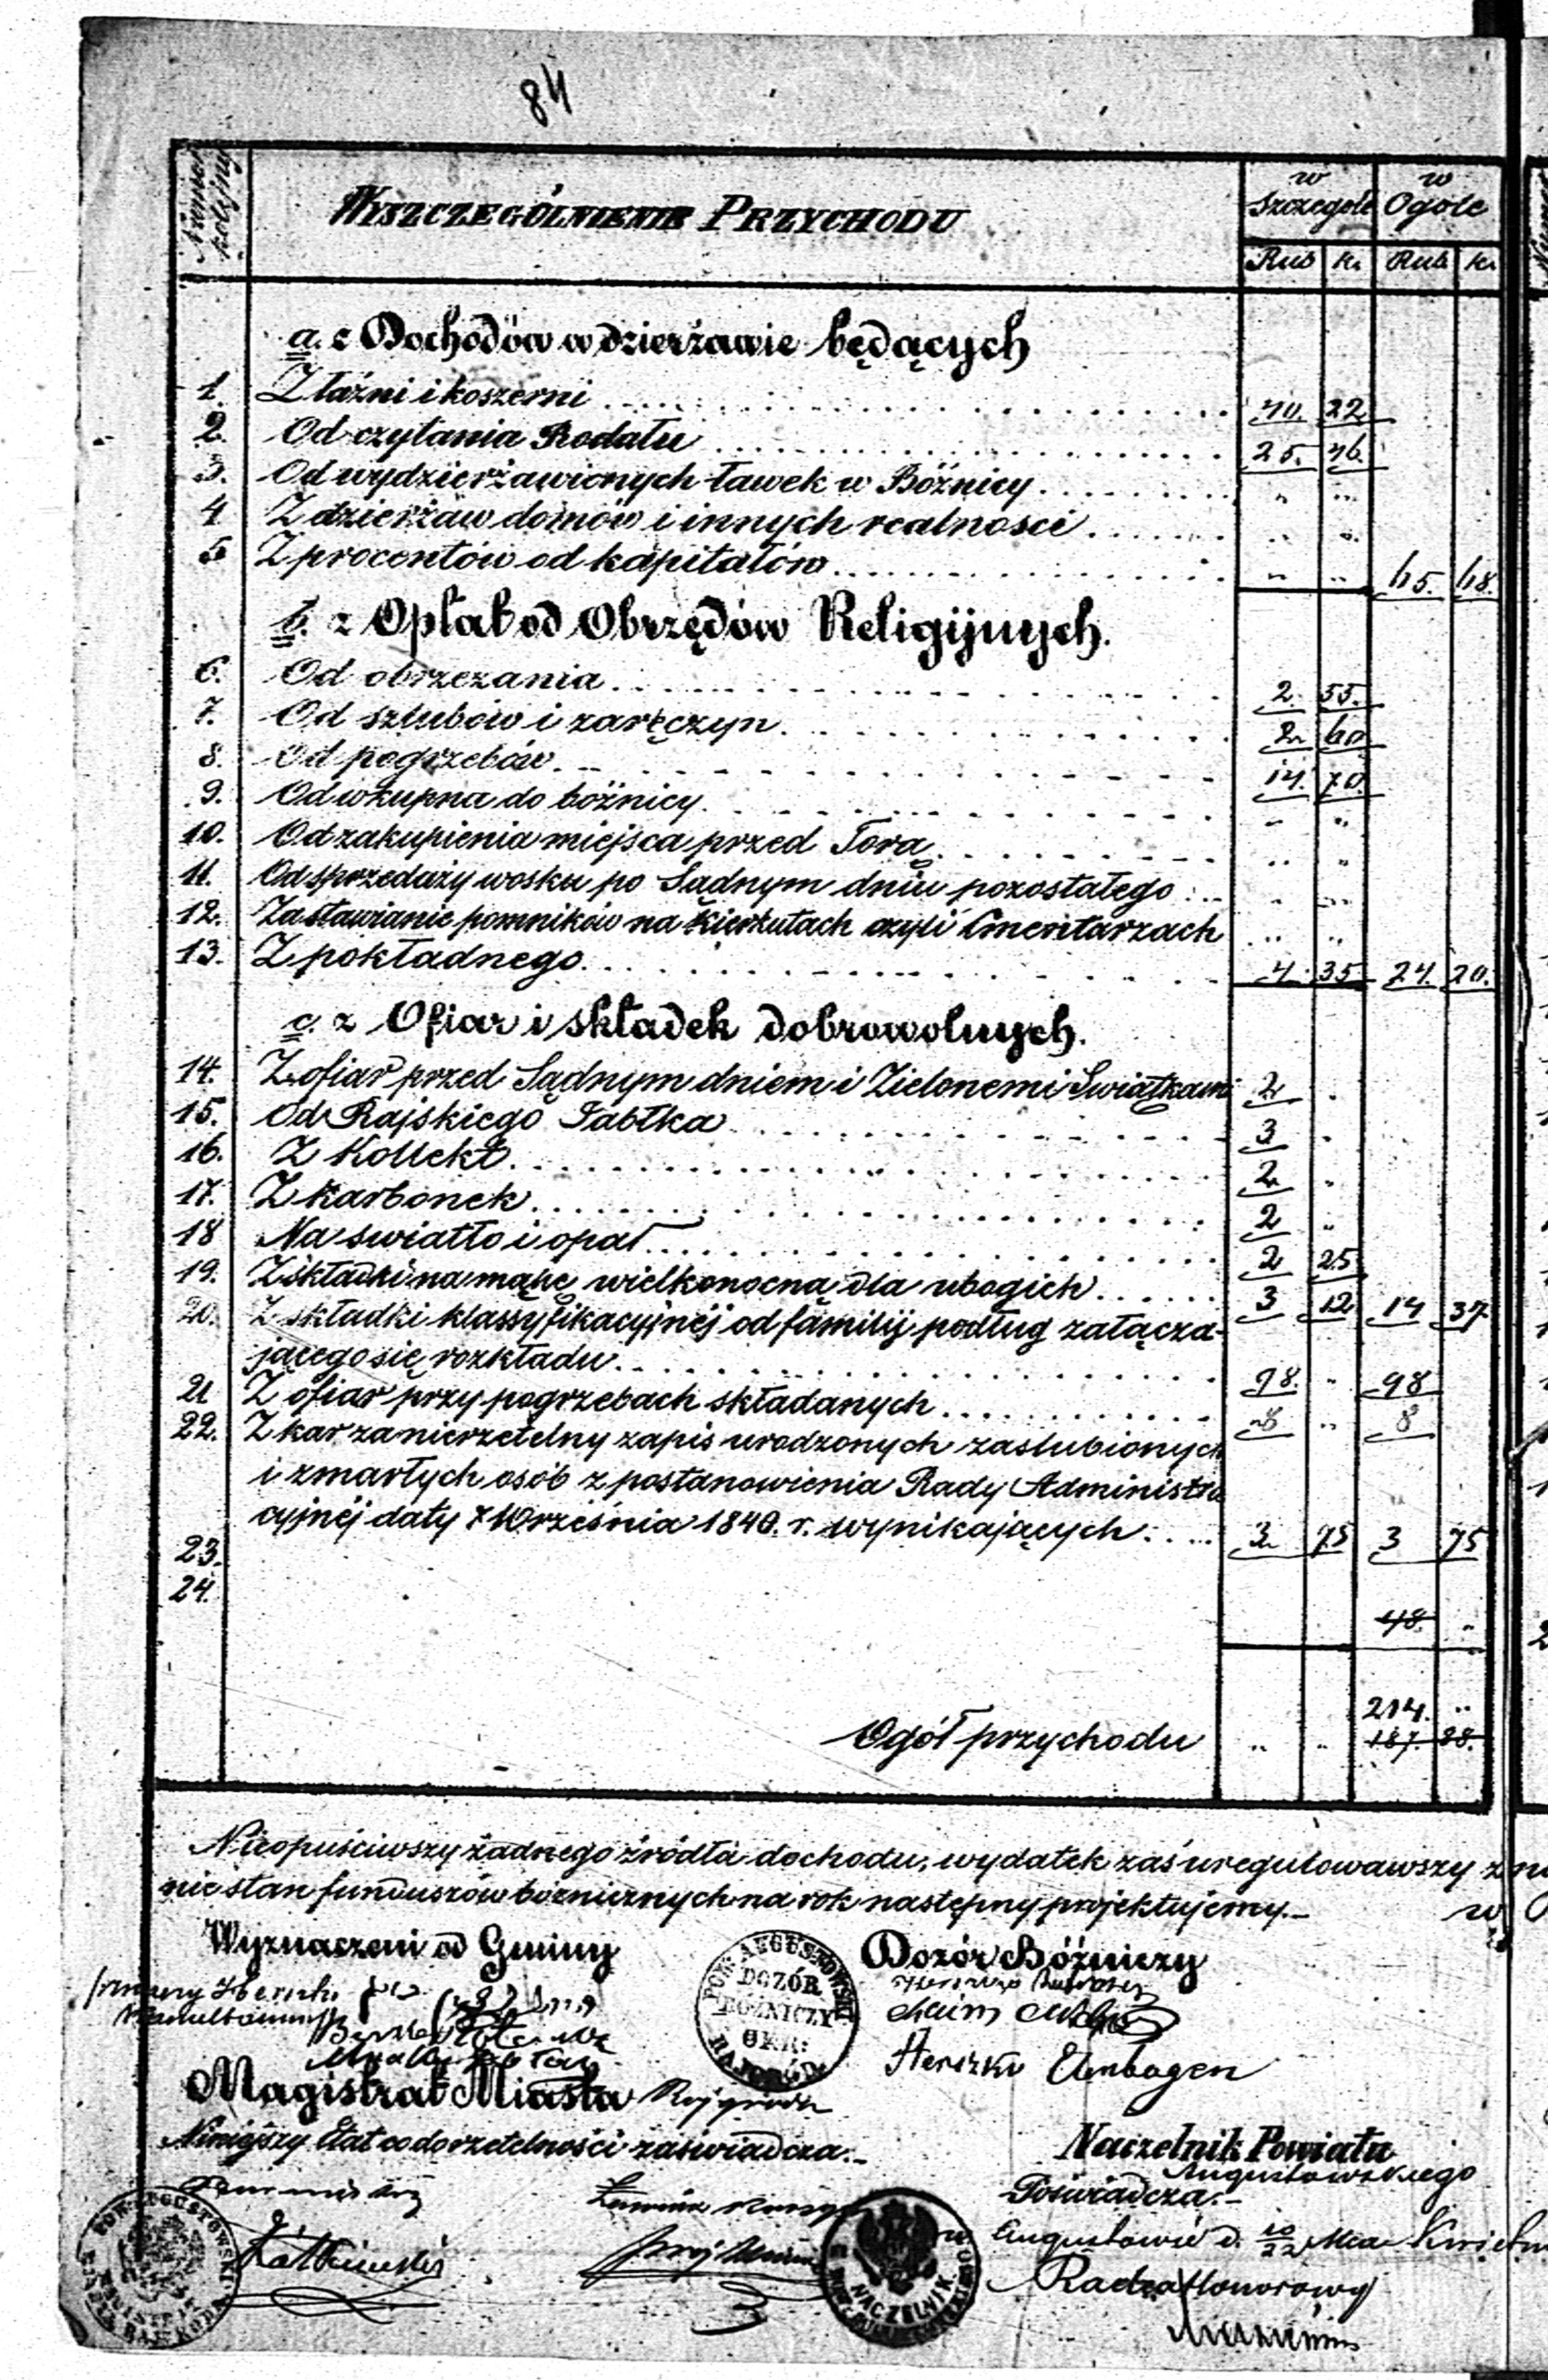 84
Numer kolejny
WYSZCZEGÓLNIENIE PRZYCHODU
w Szczególe
w Ogóle
Rub k. Rub k.
a. z Dochodów w dzierżawie będących
1. Z łaźni i koszerni 40. 22
2. Od czytania Rodału 25. 46.
3. Od wydzierżawionych ławek w Bóżnicy " "
4 Z dzierżaw domów i innych realności " "
5 Z procentów od kapitałów " " 65. 68.
b. z Opłat od Obrzędów Religijnych.
6. Od obrzezania 2. 55.
7. Od szlubów i zaręczyn 2 60
8. Od pogrzebów 14. 70.
9. Od wkupna do bóżnicy " "
10. Od zakupienia miejsca przed Torą " "
11. Od sprzedaży wosku po Sądnym dniu pozostałego " "
12. Za stawianie pomników na Kierkutach czyli Cmentarzach " "
13. Z pokładnego 4. 35 24. 20.
c. z Ofiar i składek dobrowolnych.
14. Z ofiar przed Sądnym dniem i Zielonemi Swiątkami 2 "
15. Od Rajskiego Jabłka 3 "
16. Z Kollekt 2 "
17. Z karbonek 2 "
18 Na swiatło i opał 2 25
19. Z składki na mącę wielkonocną dla ubogich 3 12 14 37
20. Z składki klassyfikacyjnéj od familij podług załącza-
jącego się rozkładu 98. " 98
21 Z ofiar przy pogrzebach składanych 8 " 8
22. Z kar za nierzetelny zapis urodzonych zaslubionych
i zmarłych osób z postanowienia Rady Administra
cyjnéj daty 7 Września 1840. r. wynikających 3 75 3 75
23.
24.
48. "
214. "
Ogół przychodu " " 187. 88.
Nieopuściwszy żadnego źródła dochodu, wydatek zaś uregulowawszy
nie stan funduszów bóżnicznych na rok następny projektujemy.
Wyznaczeni od Gminy
Dozór Bóżniczy
POW. AUGUSTOWSKI
DOZÓR
BÓŻNICZY
OKR:
RAJGRÓD
Herszko Elmbogen
Magistrat Miasta Rajgroda
Niniejszy Etat co do rzetelności zaświadcza.
Naczelnik Powiatu
Augustowskiego
Poświadcza.
w Augustowie d. 10/22 Mca
Radca Honorowy
NACZELNIK